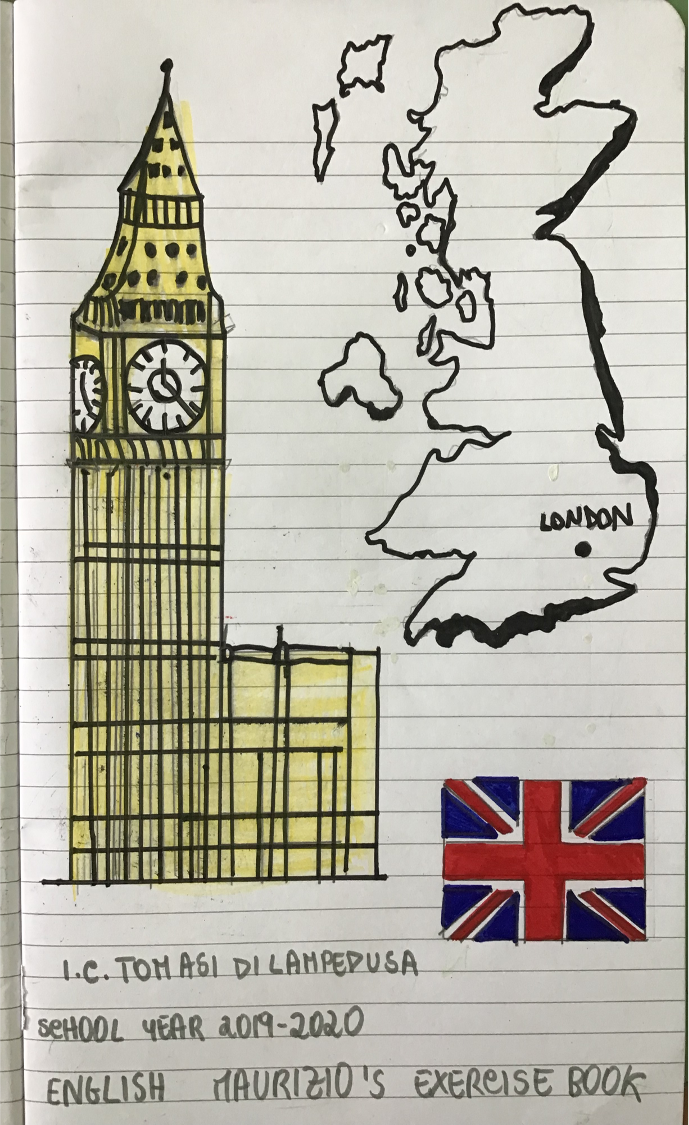 LONDON
I.C. TOMASI DI LAMPEDUSA
SCHOOL YEAR 2019-2020
ENGLISH MAURIZIO'S EXERCISE BOOK